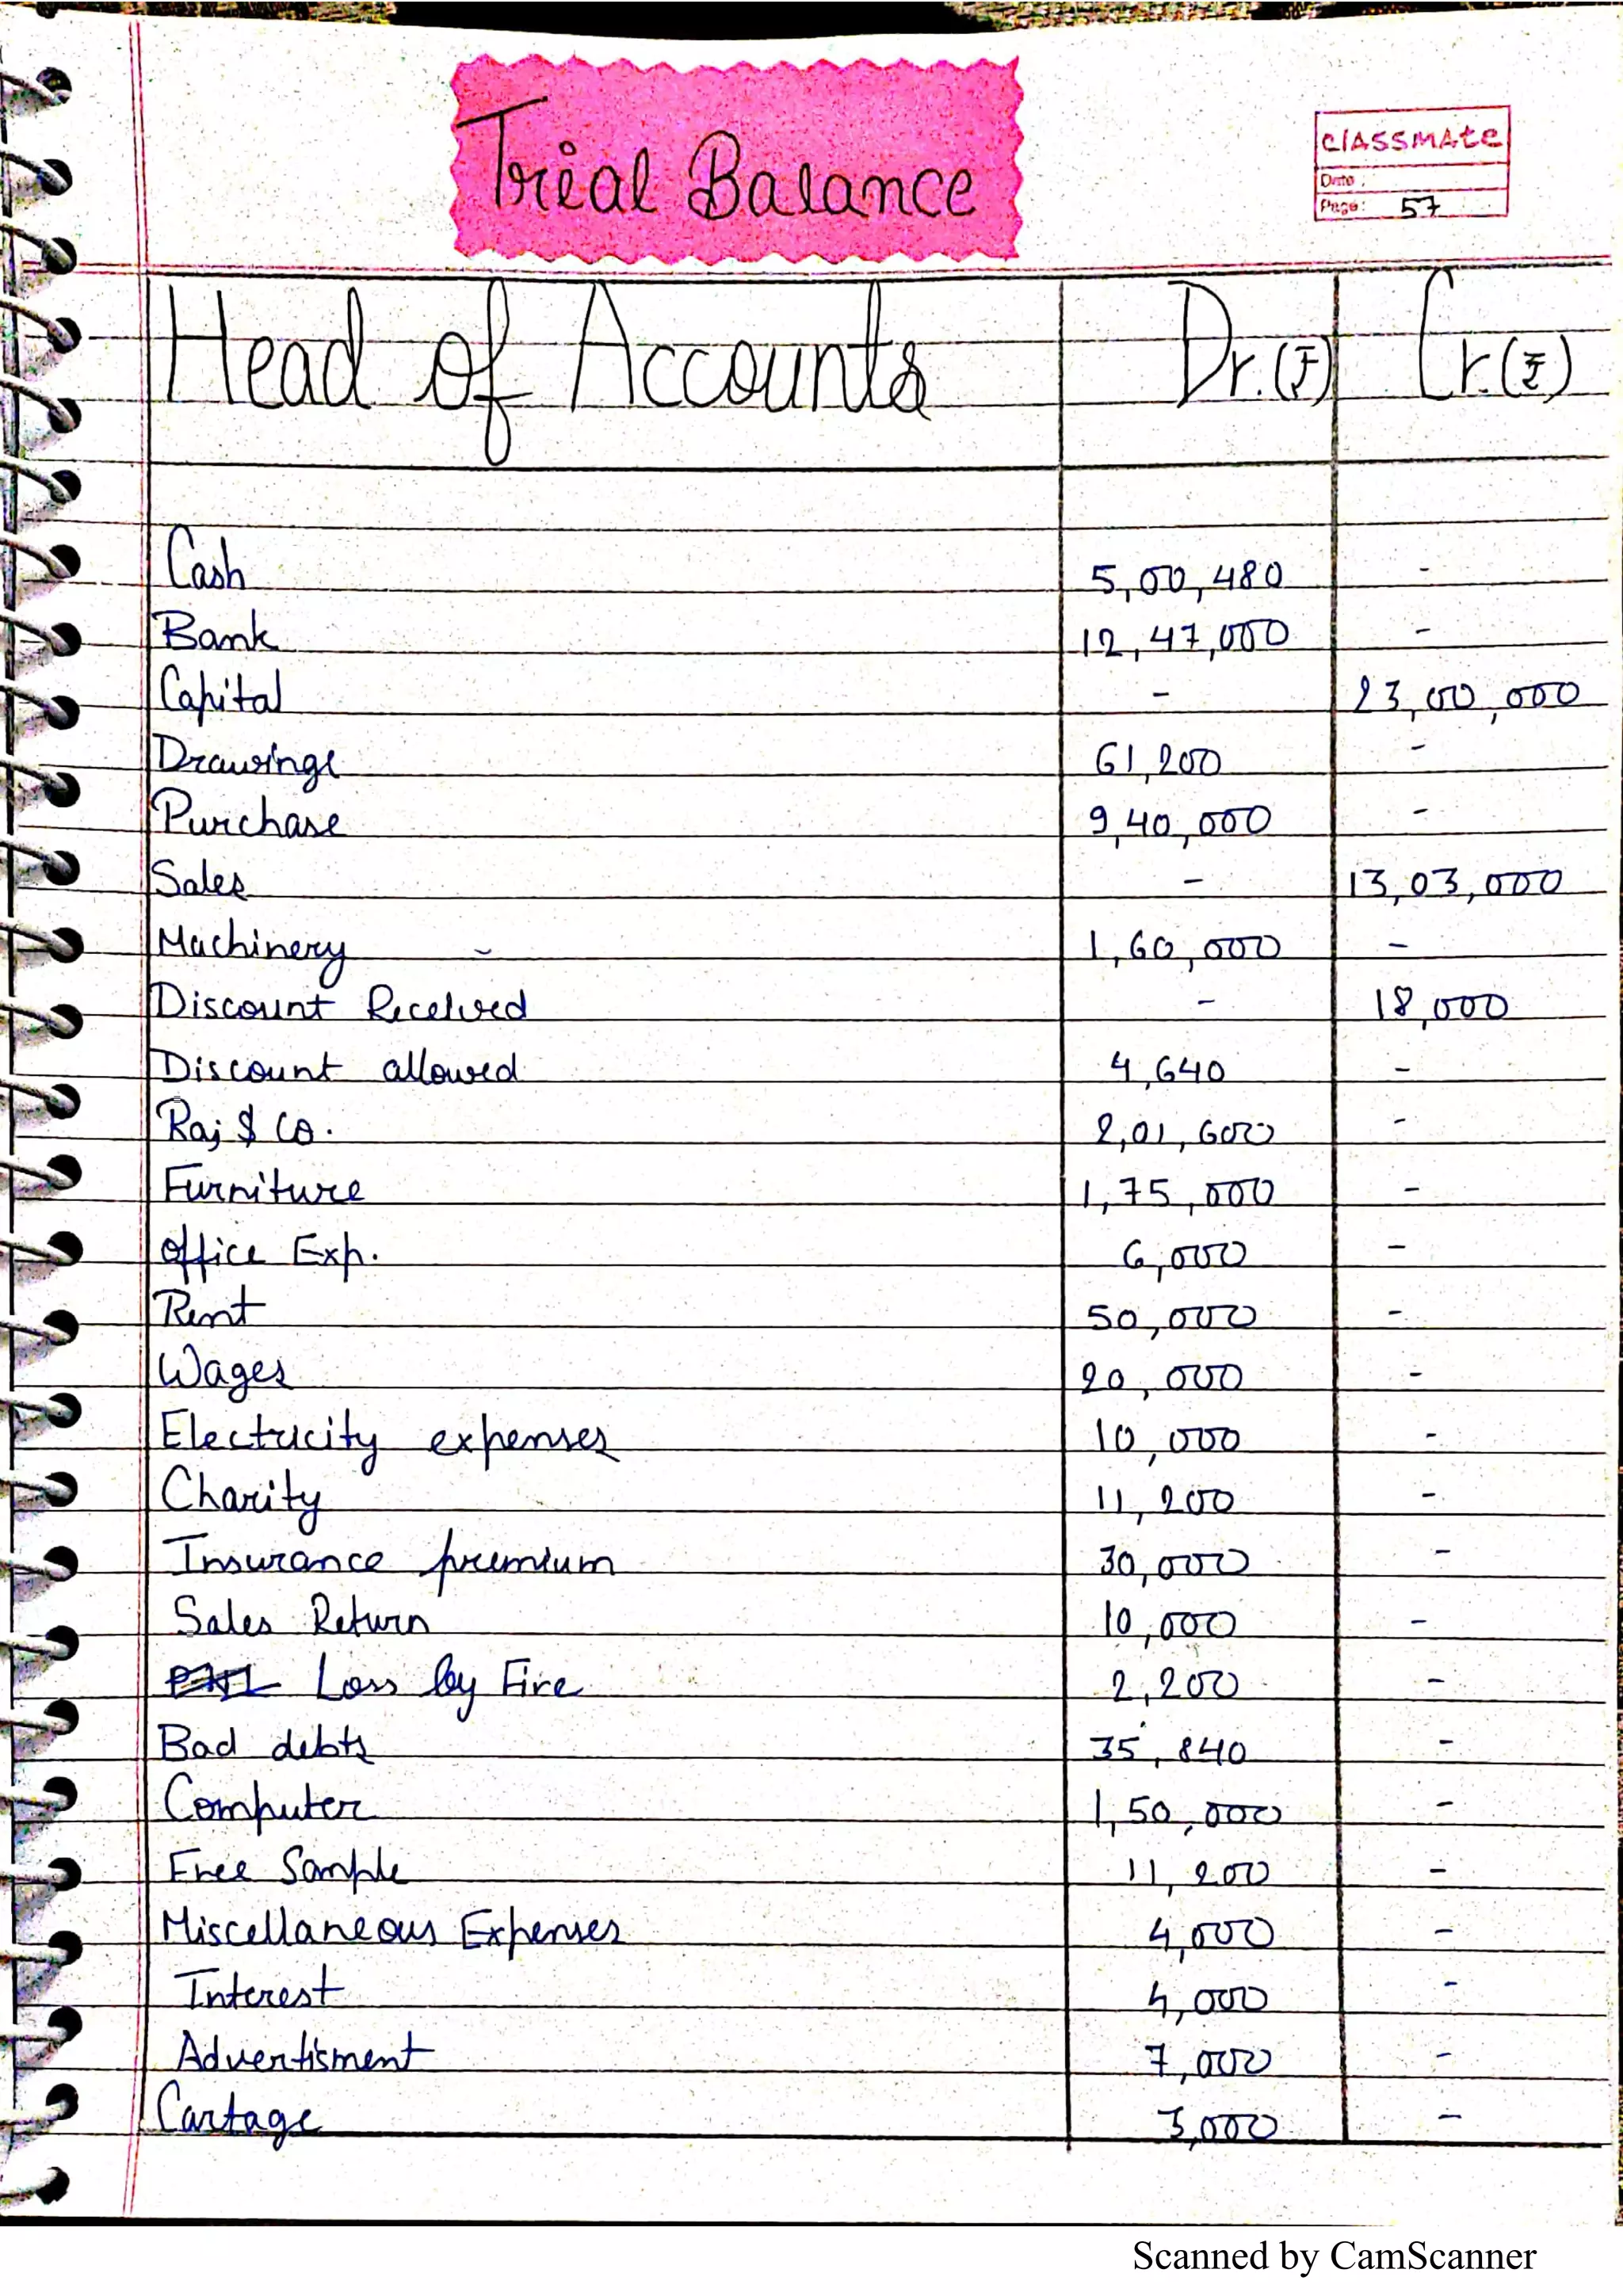 Trial Balance
CLASSMATE
Date:
Page: 57
Head of Accounts Dr.(₹) Cr.(₹)
Cash 5,00,480 -
Bank 12,47,000 -
Capital - 23,00,000
Drawings 61,200 -
Purchase 9,40,000 -
Sales - 13,03,000
Machinery - 1,60,000 -
Discount Received - 18,000
Discount allowed 4,640 -
Raj & Co. 2,01,600 -
Furniture 1,75,000 -
office Exp. 6,000 -
Rent 50,000 -
Wages 20,000 -
Electricity expenses 10,000 -
Charity 11,200 -
Insurance premium 30,000 -
Sales Return 10,000 -
Loss by Fire 2,200 -
Bad debts 35,840 -
Computer 1,50,000 -
Free Sample 11,200 -
Miscellaneous Expenses 4,000 -
Interest 4,000 -
Advertisment 7,000 -
Cartage 3,000 -
Scanned by CamScanner